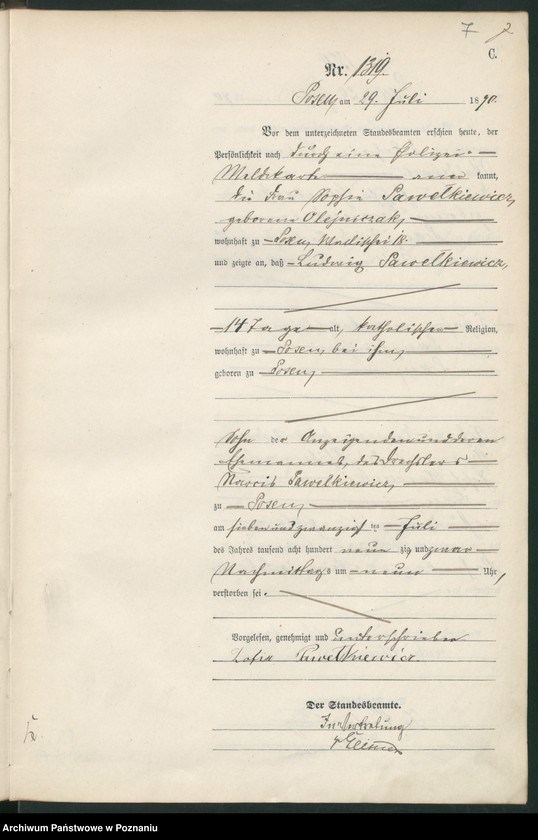 7 2
C.
Nr. 1319.
Posen, am 29. Juli 1890.
Vor dem unterzeichneten Standesbeamten erschien heute, der
Persönlichkeit nach durch eine Polizei-
Meldekarte aner kannt,
die Frau Sophie Pawełkiewicz,
geborene Olejniczak,
wohnhaft zu Posen, Wallischei
und zeigte an, daß Ludwig Pawełkiewicz,
14 Tage alt, katholischer Religion,
wohnhaft zu Posen, bei ihm,
geboren zu Posen,
Sohn der Anzeigenden und deren
Ehemannes, des Drechslers
Narcis Pawełkiewicz,
zu Posen,
am sieben und zwanzigsten Juli
des Jahres tausend acht hundert neunzig und zwar
Nachmittags um neun Uhr,
verstorben sei.
Vorgelesen, genehmigt und unterschrieben
Zofia Pawełkiewicz.
Der Standesbeamte.
In Vertretung
Archiwum Państwowe w Poznaniu